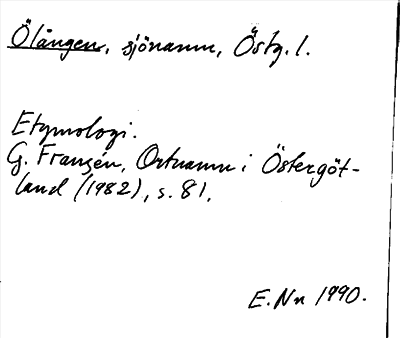 Ölången, sjönamn, Östg. l.
Etymologi.
G. Franzén, Ortnamn i Östergöt-
land (1982), s. 81.
E. Nn 1990.